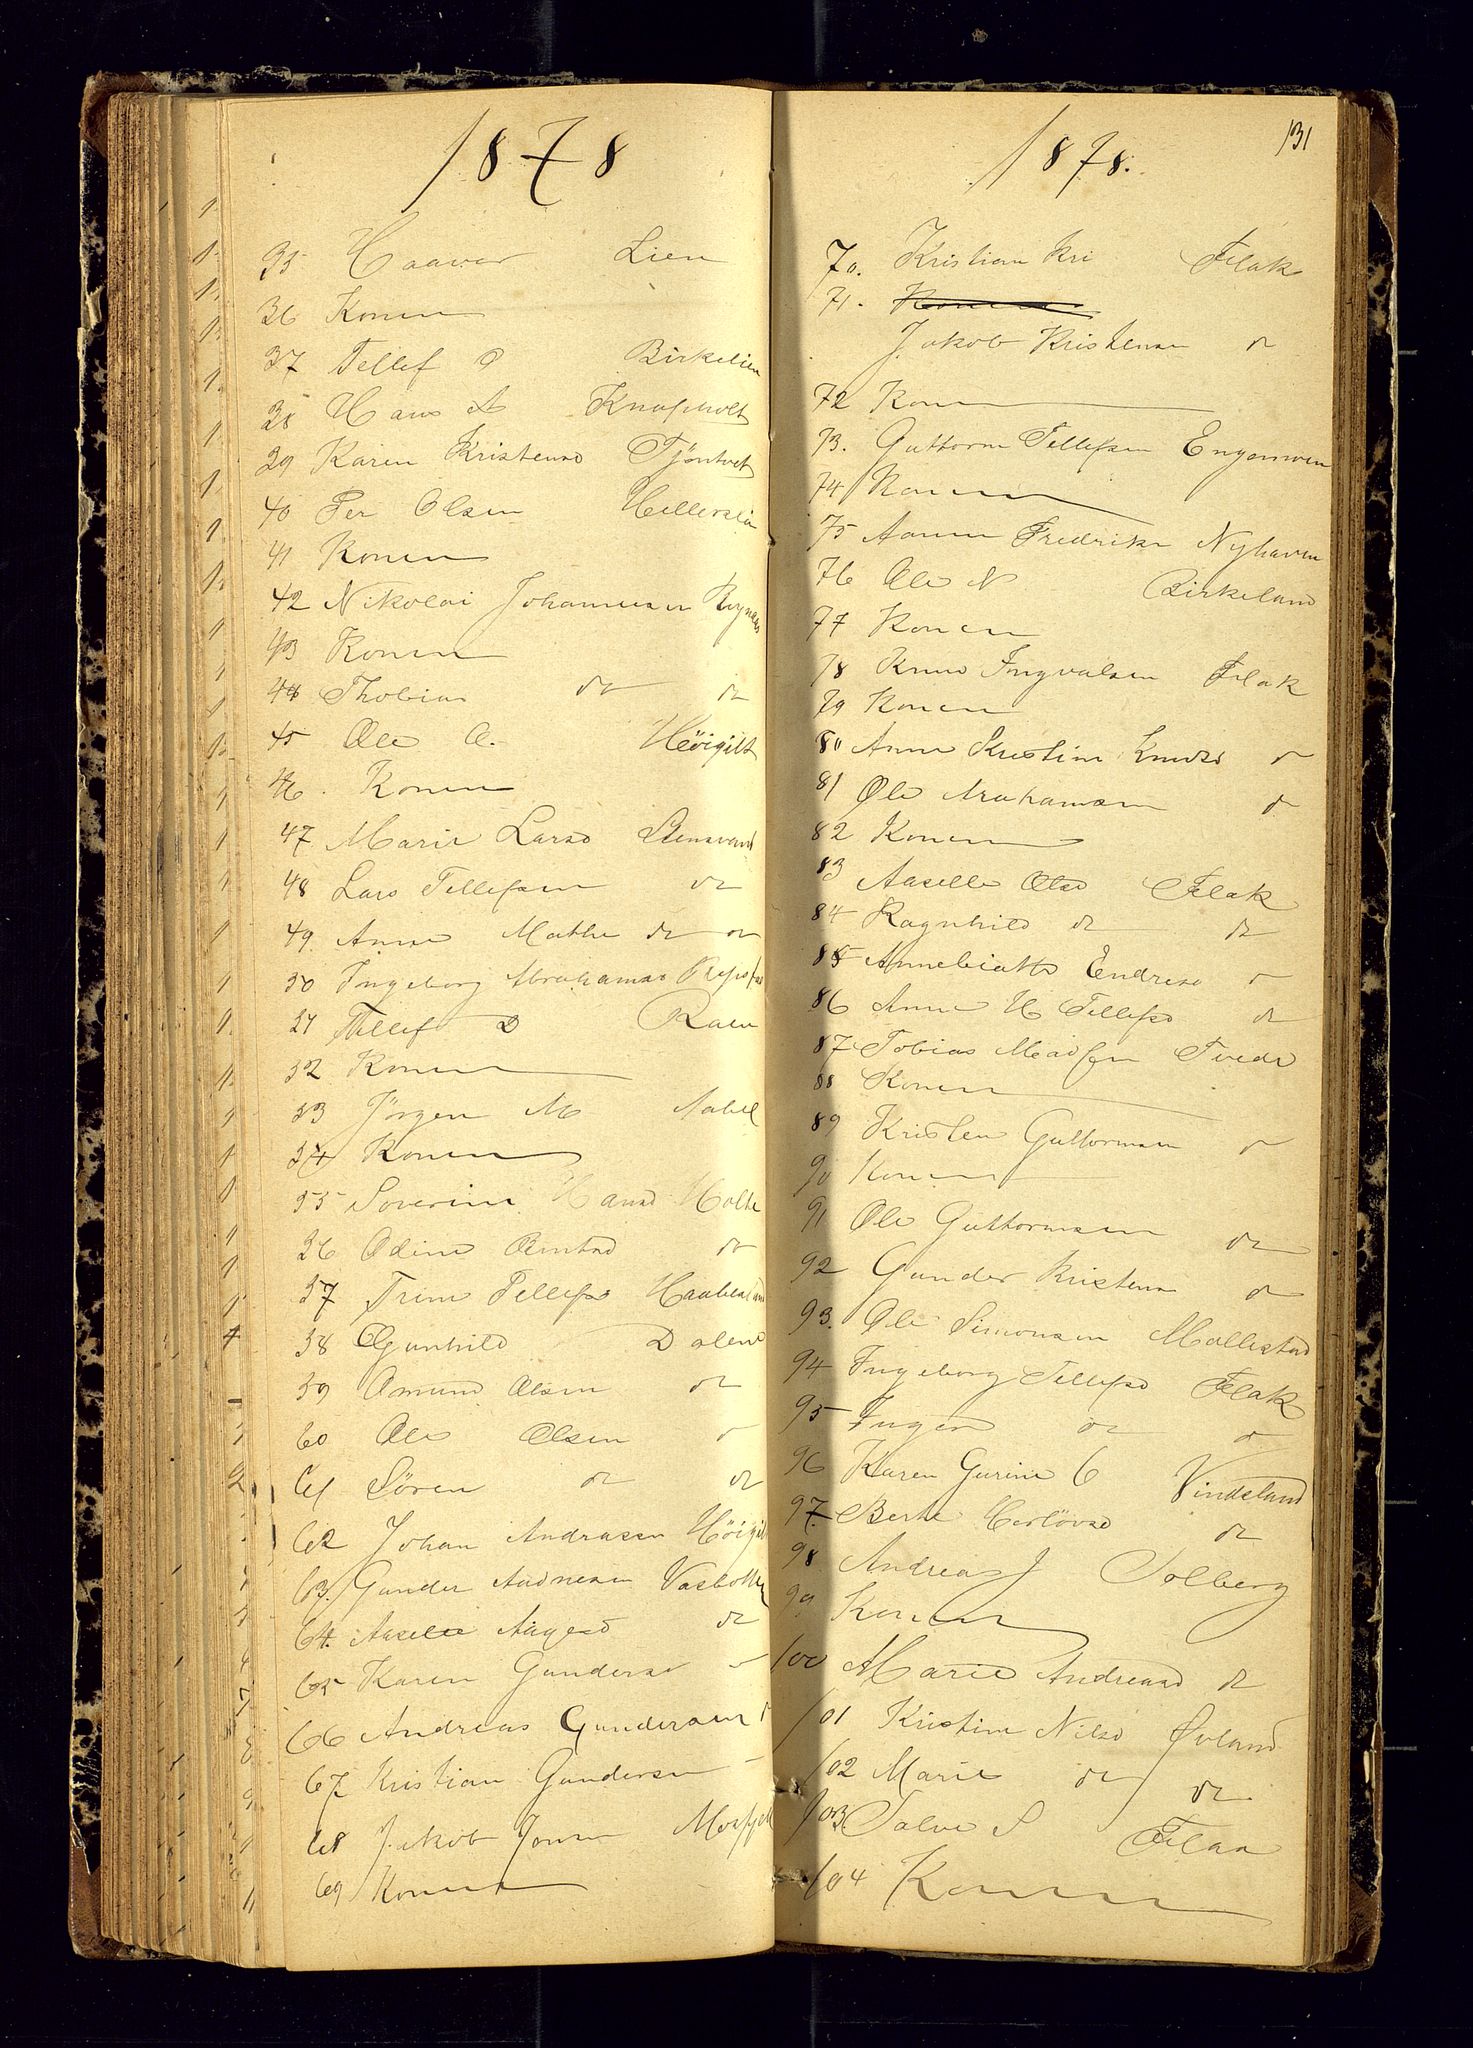 1878
35 Haaver Lien
36 Konen
37 Tellef O Birkelien
38 Hans A Knapholt
39 Karen Kristensd Tjöntvet
40 Per Olsen Hellerslia
41 Konen
42 Nikolai Johannesen
43 Konen
44 Thobias do do
45 Ole O. Höigilt
46. Konen
47 Marie Larsd Stensvand
48 Lars Tellefsen do
49. Anne Mathe do do
50 Ingeborg Abrahamsd
51 Tellef D Raen
52 Konen
53 Jörgen M Aabel
54 Konen
55 Soverine Hansd Holte
56 Odine do
57 Trine Tellefsd
58 Gunhild Dalene
59 Amund Olsen do
60 Ole Olsen do
61 Sören do do
62 Johan Andrasen Höigilt
63. Gunder Audnesen Vasbotten
64. Aaselie Aagesd do
65 Karen Gundersd
66 Andreas Gundersen do
67 Kristian Gundersen
68 Jakob Jonsen Mosfjell
69 Konen
1878. 131
70. Kristian Kri Flak
71. Konen
Jakob Kristensen do
72 Konen
73. Guttorm Tellefsen Engemoen
74 Konen
75 Anne Fredrikke Nyhaven
76 Ole N Birkeland
77 Konen
78 Knud Ingvalsen Flak
79 Konen
80 Anne Kristine Knudsd do
81 Ole Arahamsen do
82 Konen
83 Aaselle Olsd Flak
84 Ragnhild do do
85 Annebiathe Endresd do
86 Anne H Tellefsd do
87 Tobias Madsen Tvede
88 Konen
89 Kristen Guttormsen do
90 Konen
91 Ole Guttormsen do
92 Gunder Kristensen do
93. Ole Simonsen Mollestad
94 Ingeborg Tellefsd Flak
95 Inger do do
96 Karen Gurine G Vindsland
97. Berte do
98. Andreas J Solberg
99. Konen
100 Marie Andreasd do
101 Kristine Nilsd Övland
102 Marie do do
103 Salve S Flaa
104 Konen